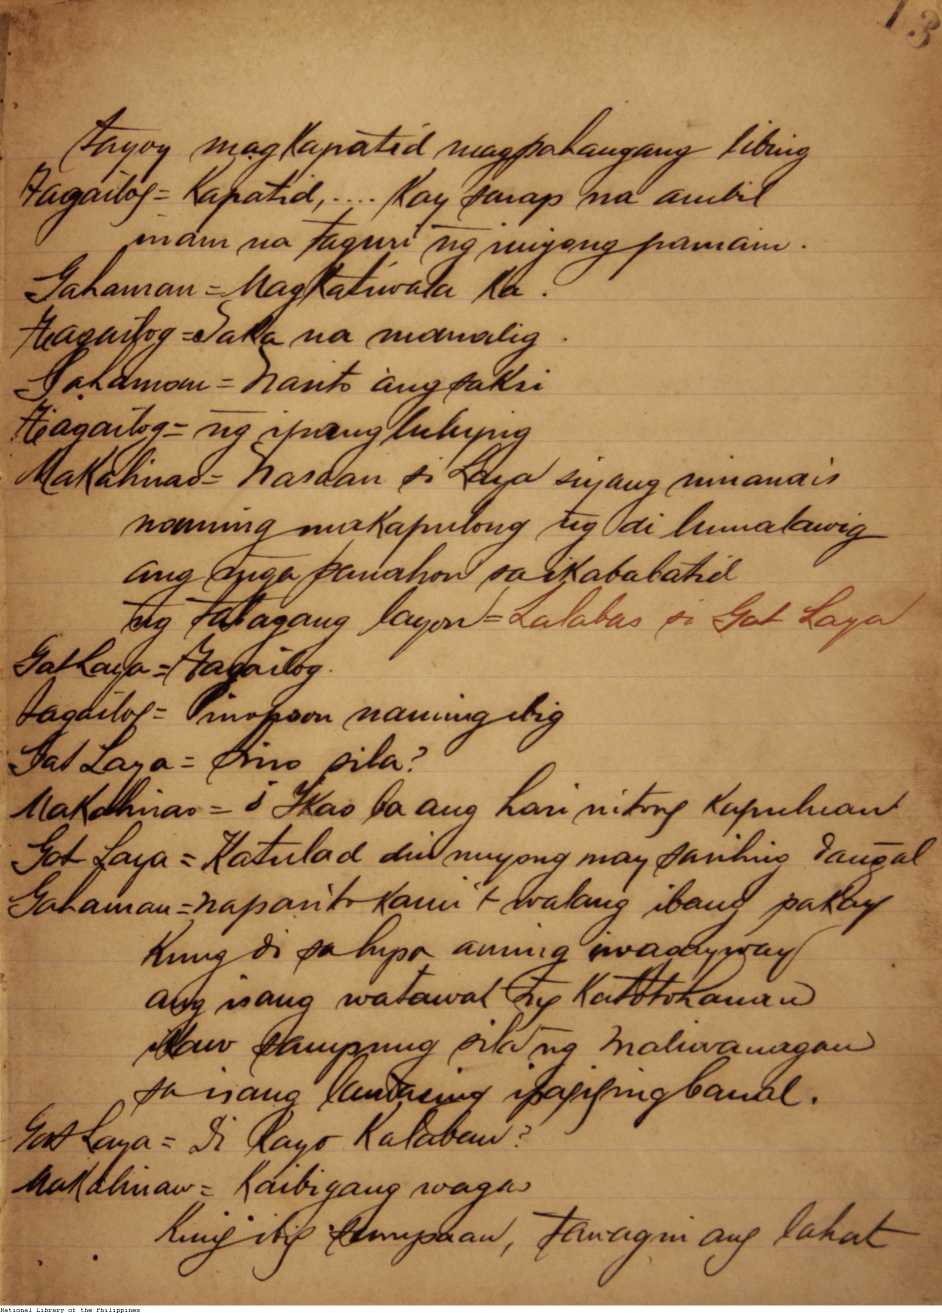 13
tayoy magkapatid magpahangang libing
Tagailog = Kapatid, .... Kay sarap na ambil
inam na taguri ng iniyong pamain.
Gahaman = Magkatiwala ka.
Tagailog = Saka na manalig.
Gahaman = Narito ang saksi
Tagailog = ng ipang lulupig
Makahinao = Nasaan si Laya siyang ninanais
naming makapulong ng di lumalawig
ang mga panahon sa ikababatid
ng talagang layon = Lalabas si Gat Laya
Gat Laya = Tagailog.
Tagailog = Pinopoon naming ibig
Gat Laya = Sino sila?
Makahinao = Ikao ba ang hari nitong Kapuluan
Gat Laya = Katulad din nuyong may sariling dangal
Gahaman = naparito kami't walang ibang pakay
Kung di sa lupa aming iwagayway
ang isang watawat ng Katotohanan
ikaw sampung sila ng maliwanagan
sa isang landasing ipagiging banal.
Gat Laya = Di kayo Kalaban?
Makahinaw = Kaibigang wagas
Kung ibig sumpaan, tawagin ang lahat
National Library of the Philippines